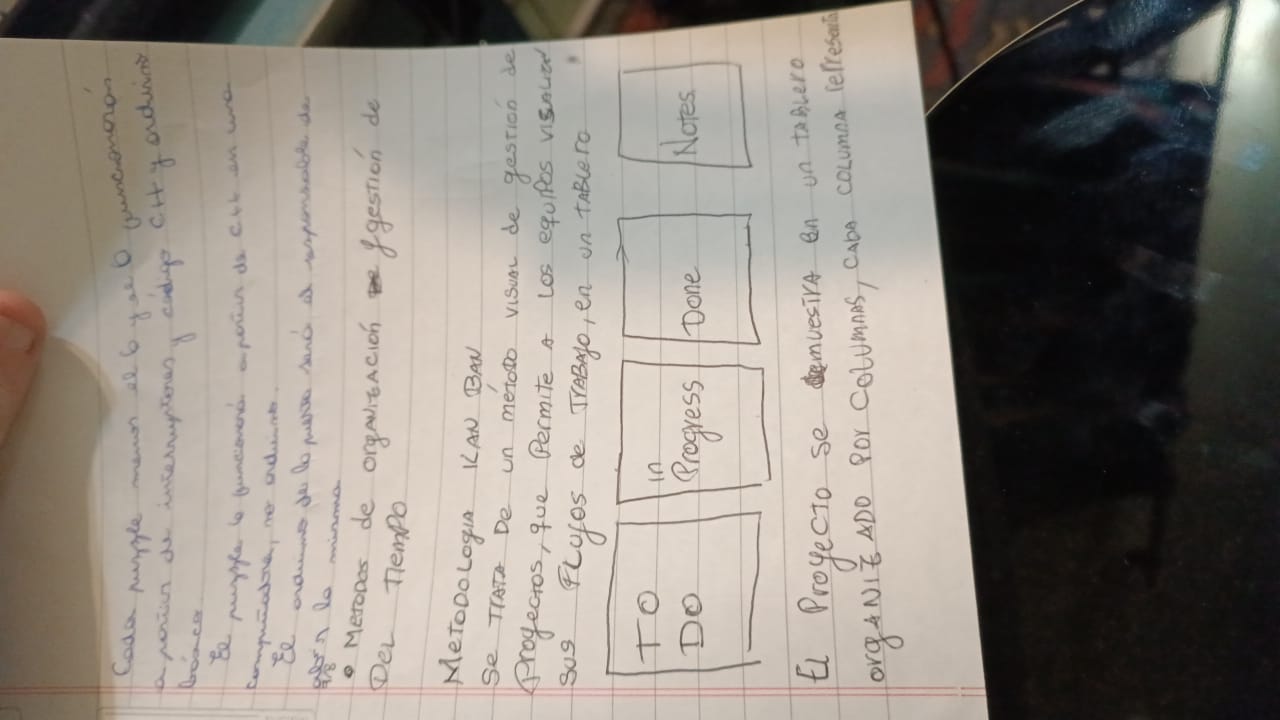 Cada puzzle menos el 6 y el 0 funcionarán
a partir de interruptores y código C++ y arduino
básico.
El puzzle 6 funcionará a partir de C++ en una
computadora, no arduino.
El arduino de la puerta será el responsable de
abrir la misma
• METODOS de ORGANIZACIÓN y gestión de
DEL TIEMPO
METODOLOGIA KAN BAN
Se TRATA De un método VISUAL de gestión de
Proyectos, que Permite A Los equipos VISUALIZAR
sus FLUJOS de TRABAJO, en un TABLERO
TO
DO
in
Progress
Done
Notes
El Proyecto se demuestra en un TABLERO
organizado por columnas, cada columna representa